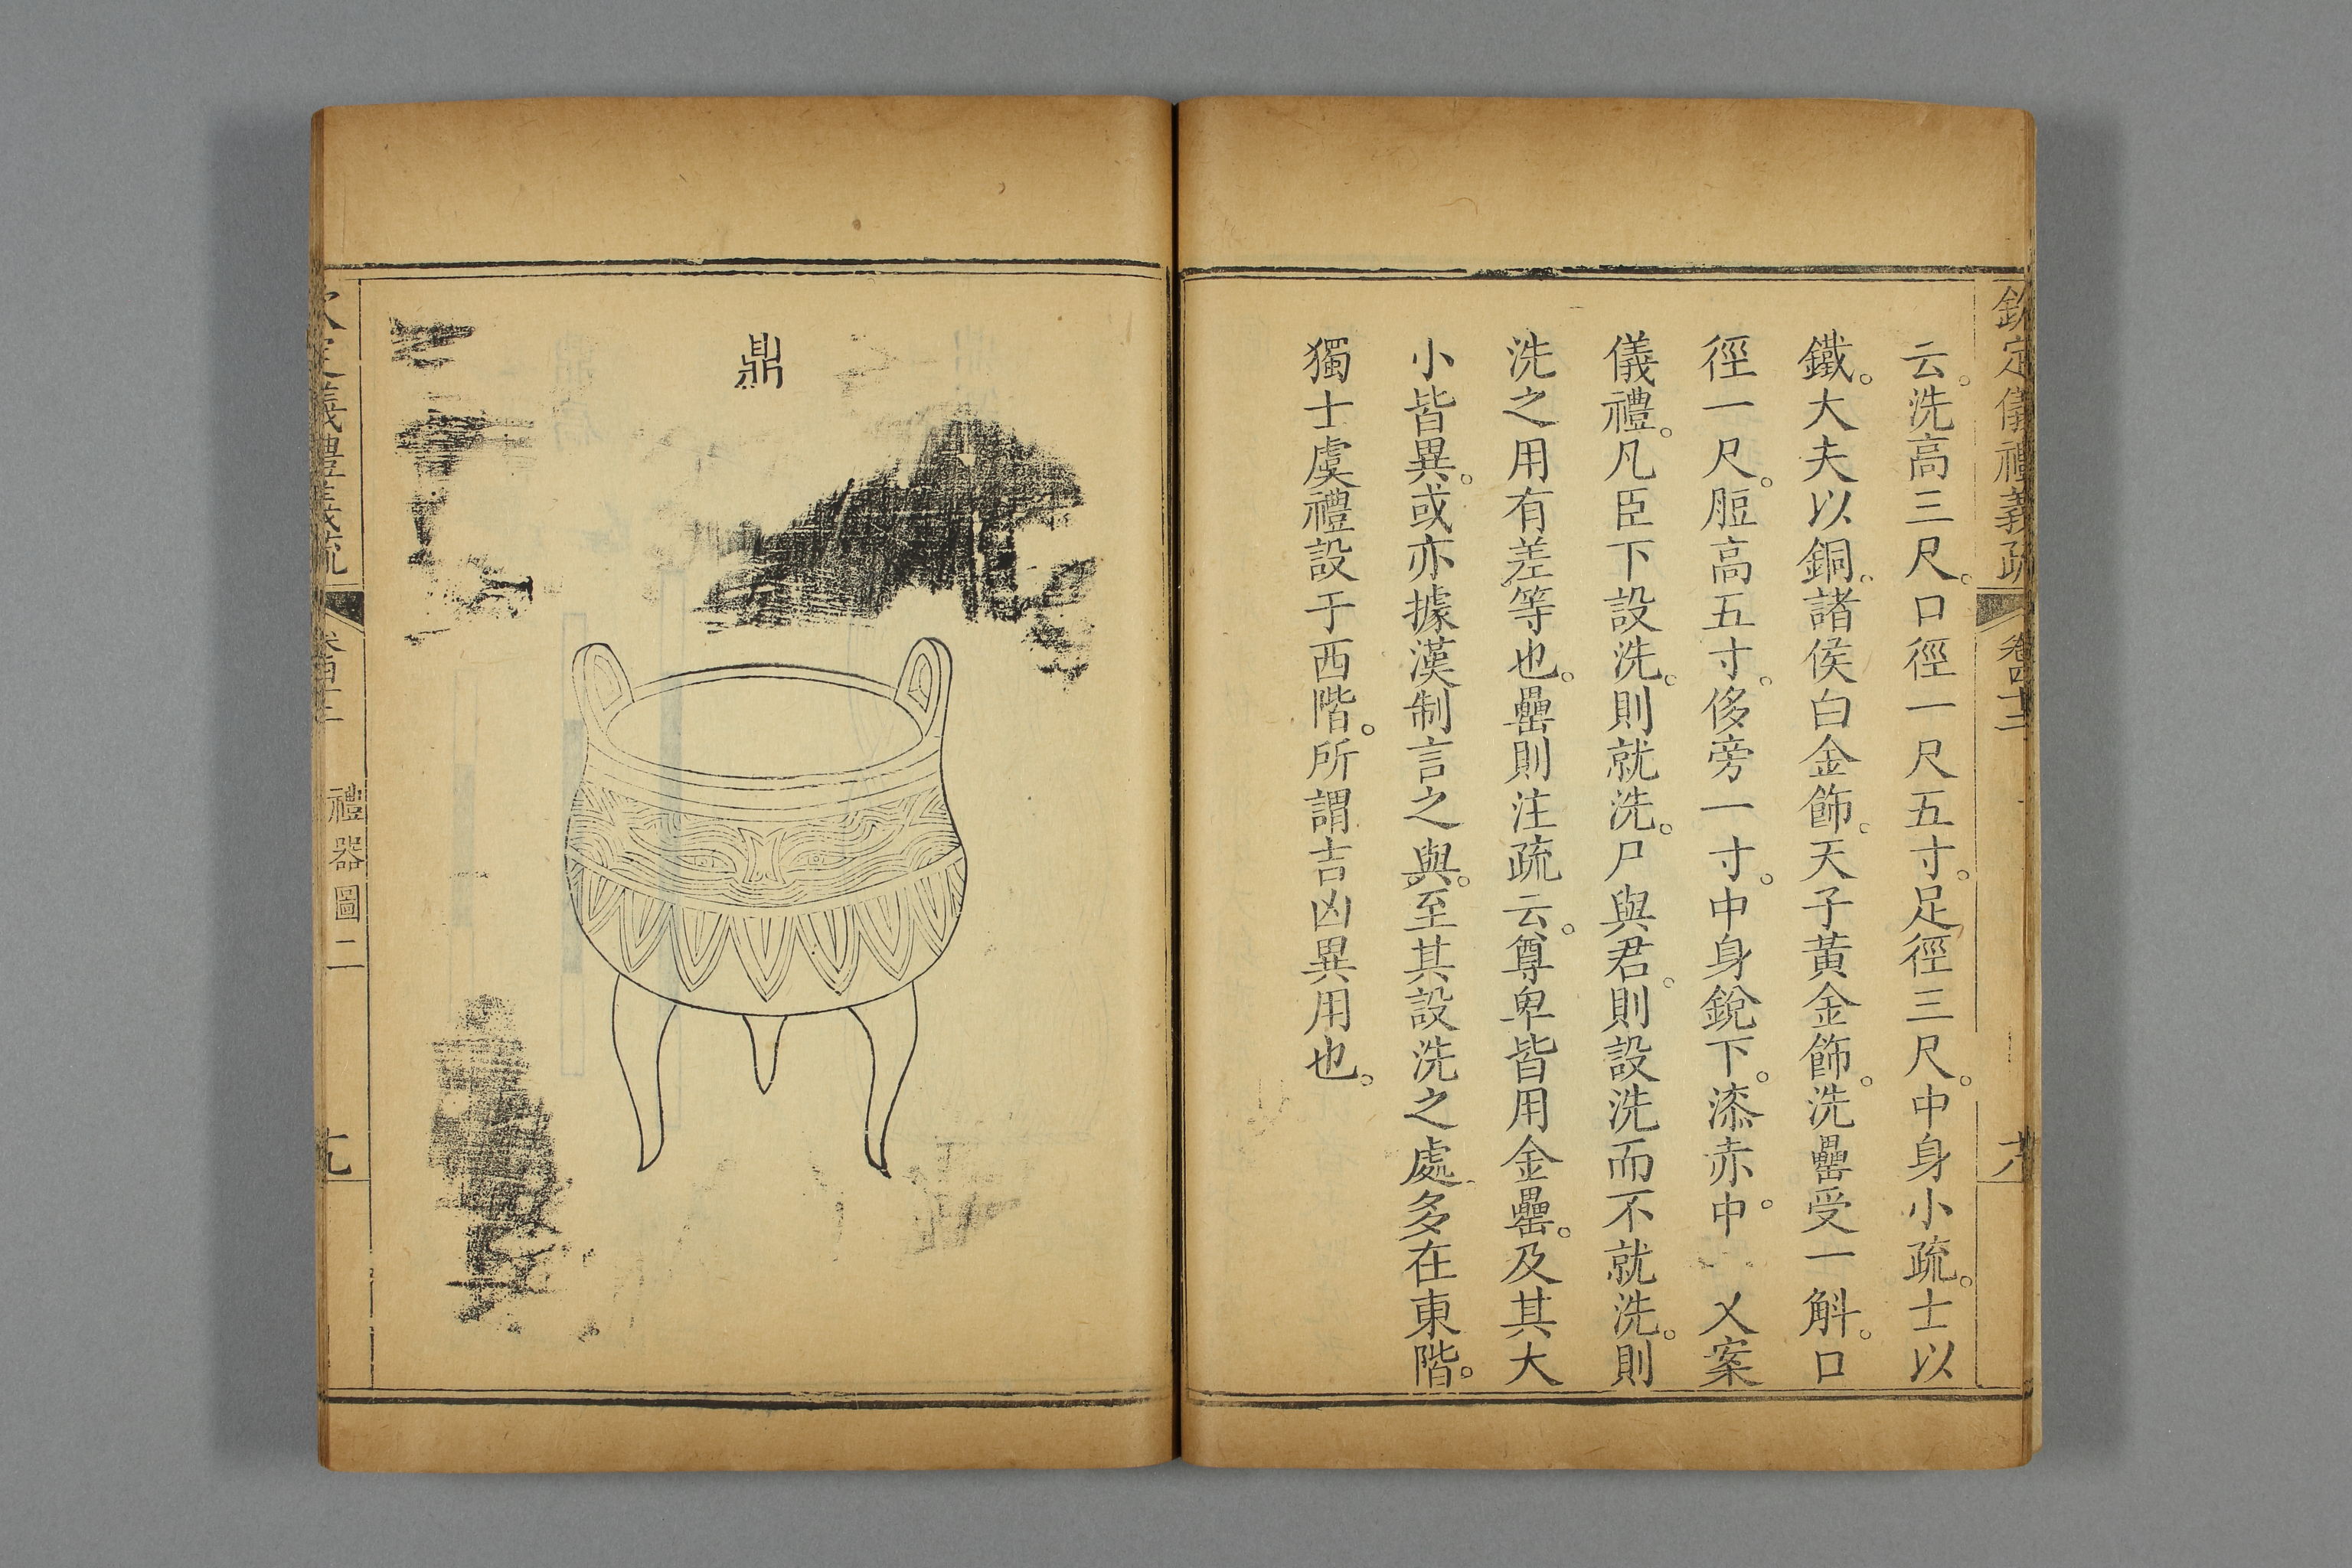 欽定儀禮義疏 卷四十二 十八
云。洗高三尺。口徑一尺五寸。足徑三尺。中身小疏。士以
鐵。大夫以銅。諸侯白金飾。天子黃金飾。洗罍受一斛。口
徑一尺。脰高五寸。侈旁一寸。中身銳下。漆赤中。 乂案
儀禮。凡臣下設洗。則就洗。尸與君。則設洗而不就洗。則
洗之用有差等也。罍則注疏云。尊卑皆用金罍。及其大
小皆異。或亦據漢制言之與。至其設洗之處。多在東階。
獨士虞禮設于西階。所謂吉凶異用也。
鼎
欽定儀禮義疏 禮器圖二